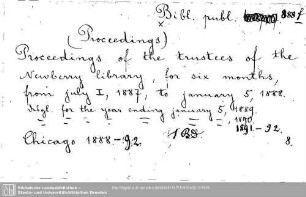 Bibl. publ. 888 f
x
(Proceedings)
Proceedings of the trustees of the
Newberry library, for six months,
from july I, 1887, to january 5, 1888.
dsgl. for the year ending january 5, 1889.
= = = = = = 1890.
1891-92.
Chicago 1888-92. 1 Bd 8.
Sächsische Landesbibliothek -
Staats- und Universitätsbibliothek Dresden